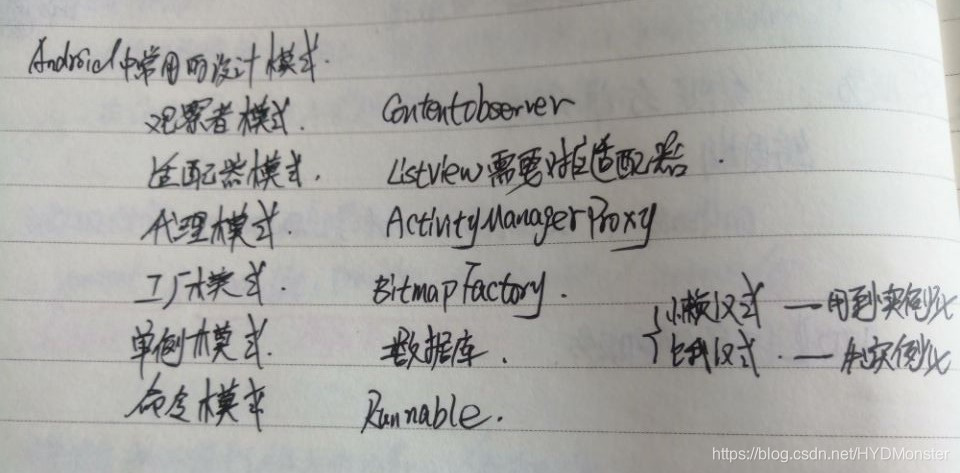 Android中常用的设计模式.
观察者模式. Contentobserver
适配器模式. Listview需要对应适配器.
代理模式 ActivityManagerProxy
工厂模式. BitmapFactory.
单例模式. 数据库. { 懒汉式 — 用到实例化
饿汉式. — 实例化
命令模式 Runnable.
https://blog.csdn.net/HYDMonster